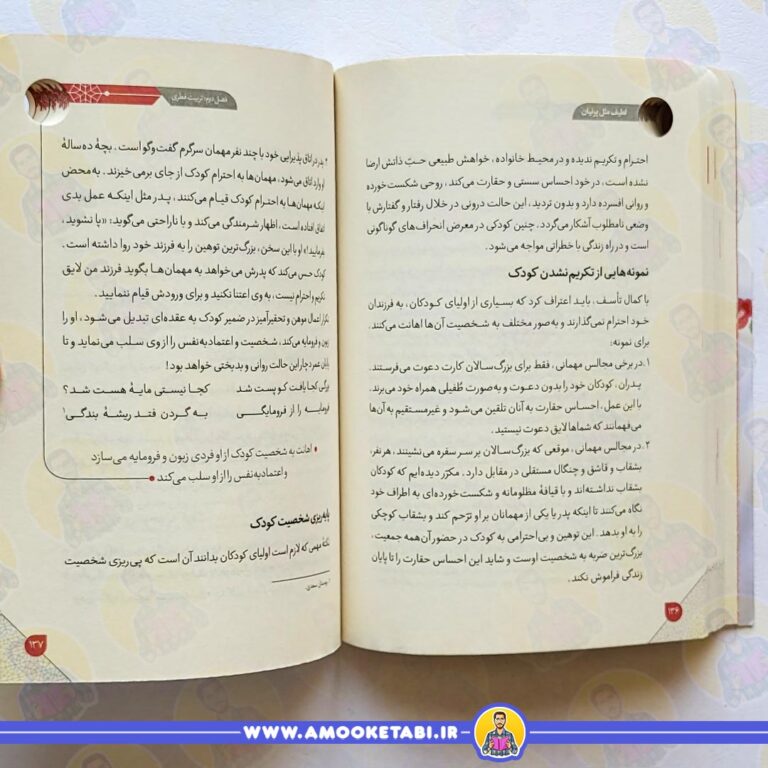 لطیف مثل پرنیان
احترام و تکریم ندیده و در محیط خانواده، خواهش طبیعی حبّ ذاتش ارضا
نشده است، در خود احساس سستی و حقارت می‌کند، روحی شکست‌خورده
و روانی افسرده دارد و بدون تردید، این حالت درونی در خلال رفتار و گفتارش با
وضعی نامطلوب آشکار می‌گردد. چنین کودکی در معرض انحراف‌های گوناگونی
است و در راه زندگی با خطراتی مواجه می‌شود.
نمونه‌هایی از تکریم نشدن کودک
با کمال تأسف، باید اعتراف کرد که بسیاری از اولیای کودکان، به فرزندان
خود احترام نمی‌گذارند و به‌صور مختلف به شخصیت آن‌ها اهانت می‌کنند.
برای نمونه:
۱. در برخی مجالس مهمانی، فقط برای بزرگ‌سالان کارت دعوت می‌فرستند.
پدران، کودکان خود را بدون دعوت و به‌صورت طُفیلی همراه خود می‌برند.
با این عمل، احساس حقارت به آنان تلقین می‌شود و غیرمستقیم به آن‌ها
می‌فهمانند که شماها لایق دعوت نیستید.
۲. در مجالس مهمانی، موقعی که بزرگ‌سالان بر سر سفره می‌نشینند، هر نفر،
بشقاب و قاشق و چنگال مستقلی در مقابل دارد. مکرّر دیده‌ایم که کودکان
بشقاب نداشته‌اند و با قیافهٔ مظلومانه و شکست‌خورده‌ای به اطراف خود
نگاه می‌کنند تا اینکه پدر یا یکی از مهمانان بر او ترّحم کند و بشقاب کوچکی
را به او بدهد. این توهین و بی‌احترامی به کودک در حضور آن همه جمعیت،
بزرگ‌ترین ضربه به شخصیت اوست و شاید این احساس حقارت را تا پایان
زندگی فراموش نکند.
۱۳۶
فصل دوم: تربیت فطری
۳. پدر در اتاق پذیرایی خود با چند نفر مهمان سرگرم گفت‌وگو است. بچهٔ ده‌سالهٔ
او وارد اتاق می‌شود، مهمان‌ها به احترام کودک از جای برمی‌خیزند. به‌محض
اینکه مهمان‌ها به احترام کودک قیام می‌کنند، پدر مثل اینکه عمل بدی
اتفاق افتاده است، اظهار شرمندگی می‌کند و با ناراحتی می‌گوید: «پا نشوید،
بفرمایید!» او با این سخن، بزرگ‌ترین توهین را به فرزند خود روا داشته است.
کودک حس می‌کند که پدرش می‌خواهد به مهمان‌ها بگوید فرزند من لایق
تکریم و احترام نیست، به وی اعتنا نکنید و برای ورودش قیام ننمایید.
تکرار اعمال موهن و تحقیرآمیز در ضمیر کودک به عقده‌ای تبدیل می‌شود، او را
زبون و فرومایه می‌کند، شخصیت و اعتمادبه‌نفس را از وی سلب می‌نماید و تا
پایان عمر دچار این حالت روانی و بدبختی خواهد بود!
بزرگی کجا یافت کو پست شد کجا نیستی مایهٔ هست شد؟
فرومایه را از فرومایگی به گردن فتد ریشهٔ بندگی۱
• اهانت به شخصیت کودک از او فردی زبون و فرومایه می‌سازد
و اعتمادبه‌نفس را از او سلب می‌کند
پایه‌ریزی شخصیت کودک
نکتهٔ مهمی که لازم است اولیای کودکان بدانند آن است که پی‌ریزی شخصیت
۱. بوستان سعدی.
۱۳۷
WWW.AMOOKETABI.IR